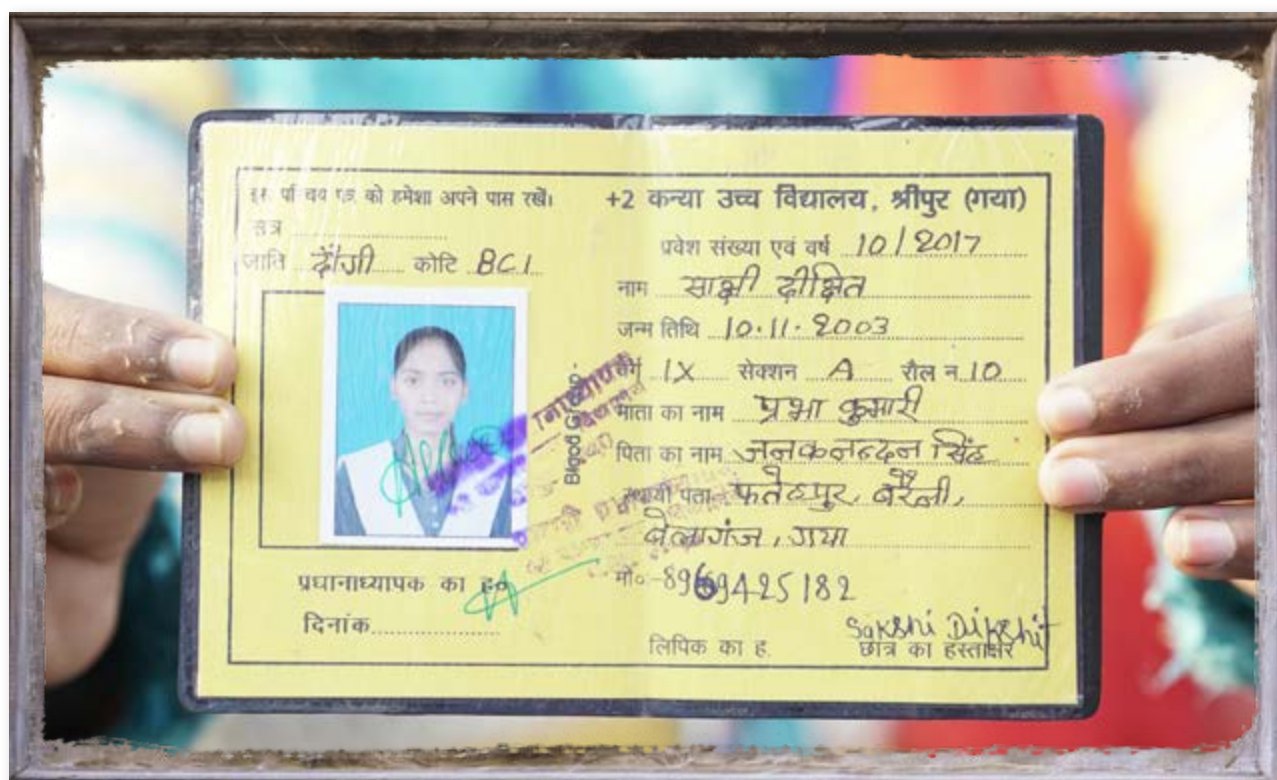 इस परिचय पत्र को हमेशा अपने पास रखें।
सत्र
जाति दाँगी कोटि BC1
प्रधानाध्यापक का ह०
दिनांक
Blood Group -
+2 कन्या उच्च विद्यालय, श्रीपुर (गया)
प्रवेश संख्या एवं वर्ष 10/2017
नाम साक्षी दीक्षित
जन्म तिथि 10.11.2003
वर्ग IX सेक्शन A रौल न. 10
माता का नाम प्रभा कुमारी
पिता का नाम जनकनन्दन सिंह
स्थायी पता फतेहपुर, बरैनी,
बेलागंज, गया
मो० -8969425182
Sakshi Dikshit
लिपिक का ह. छात्र का हस्ताक्षर